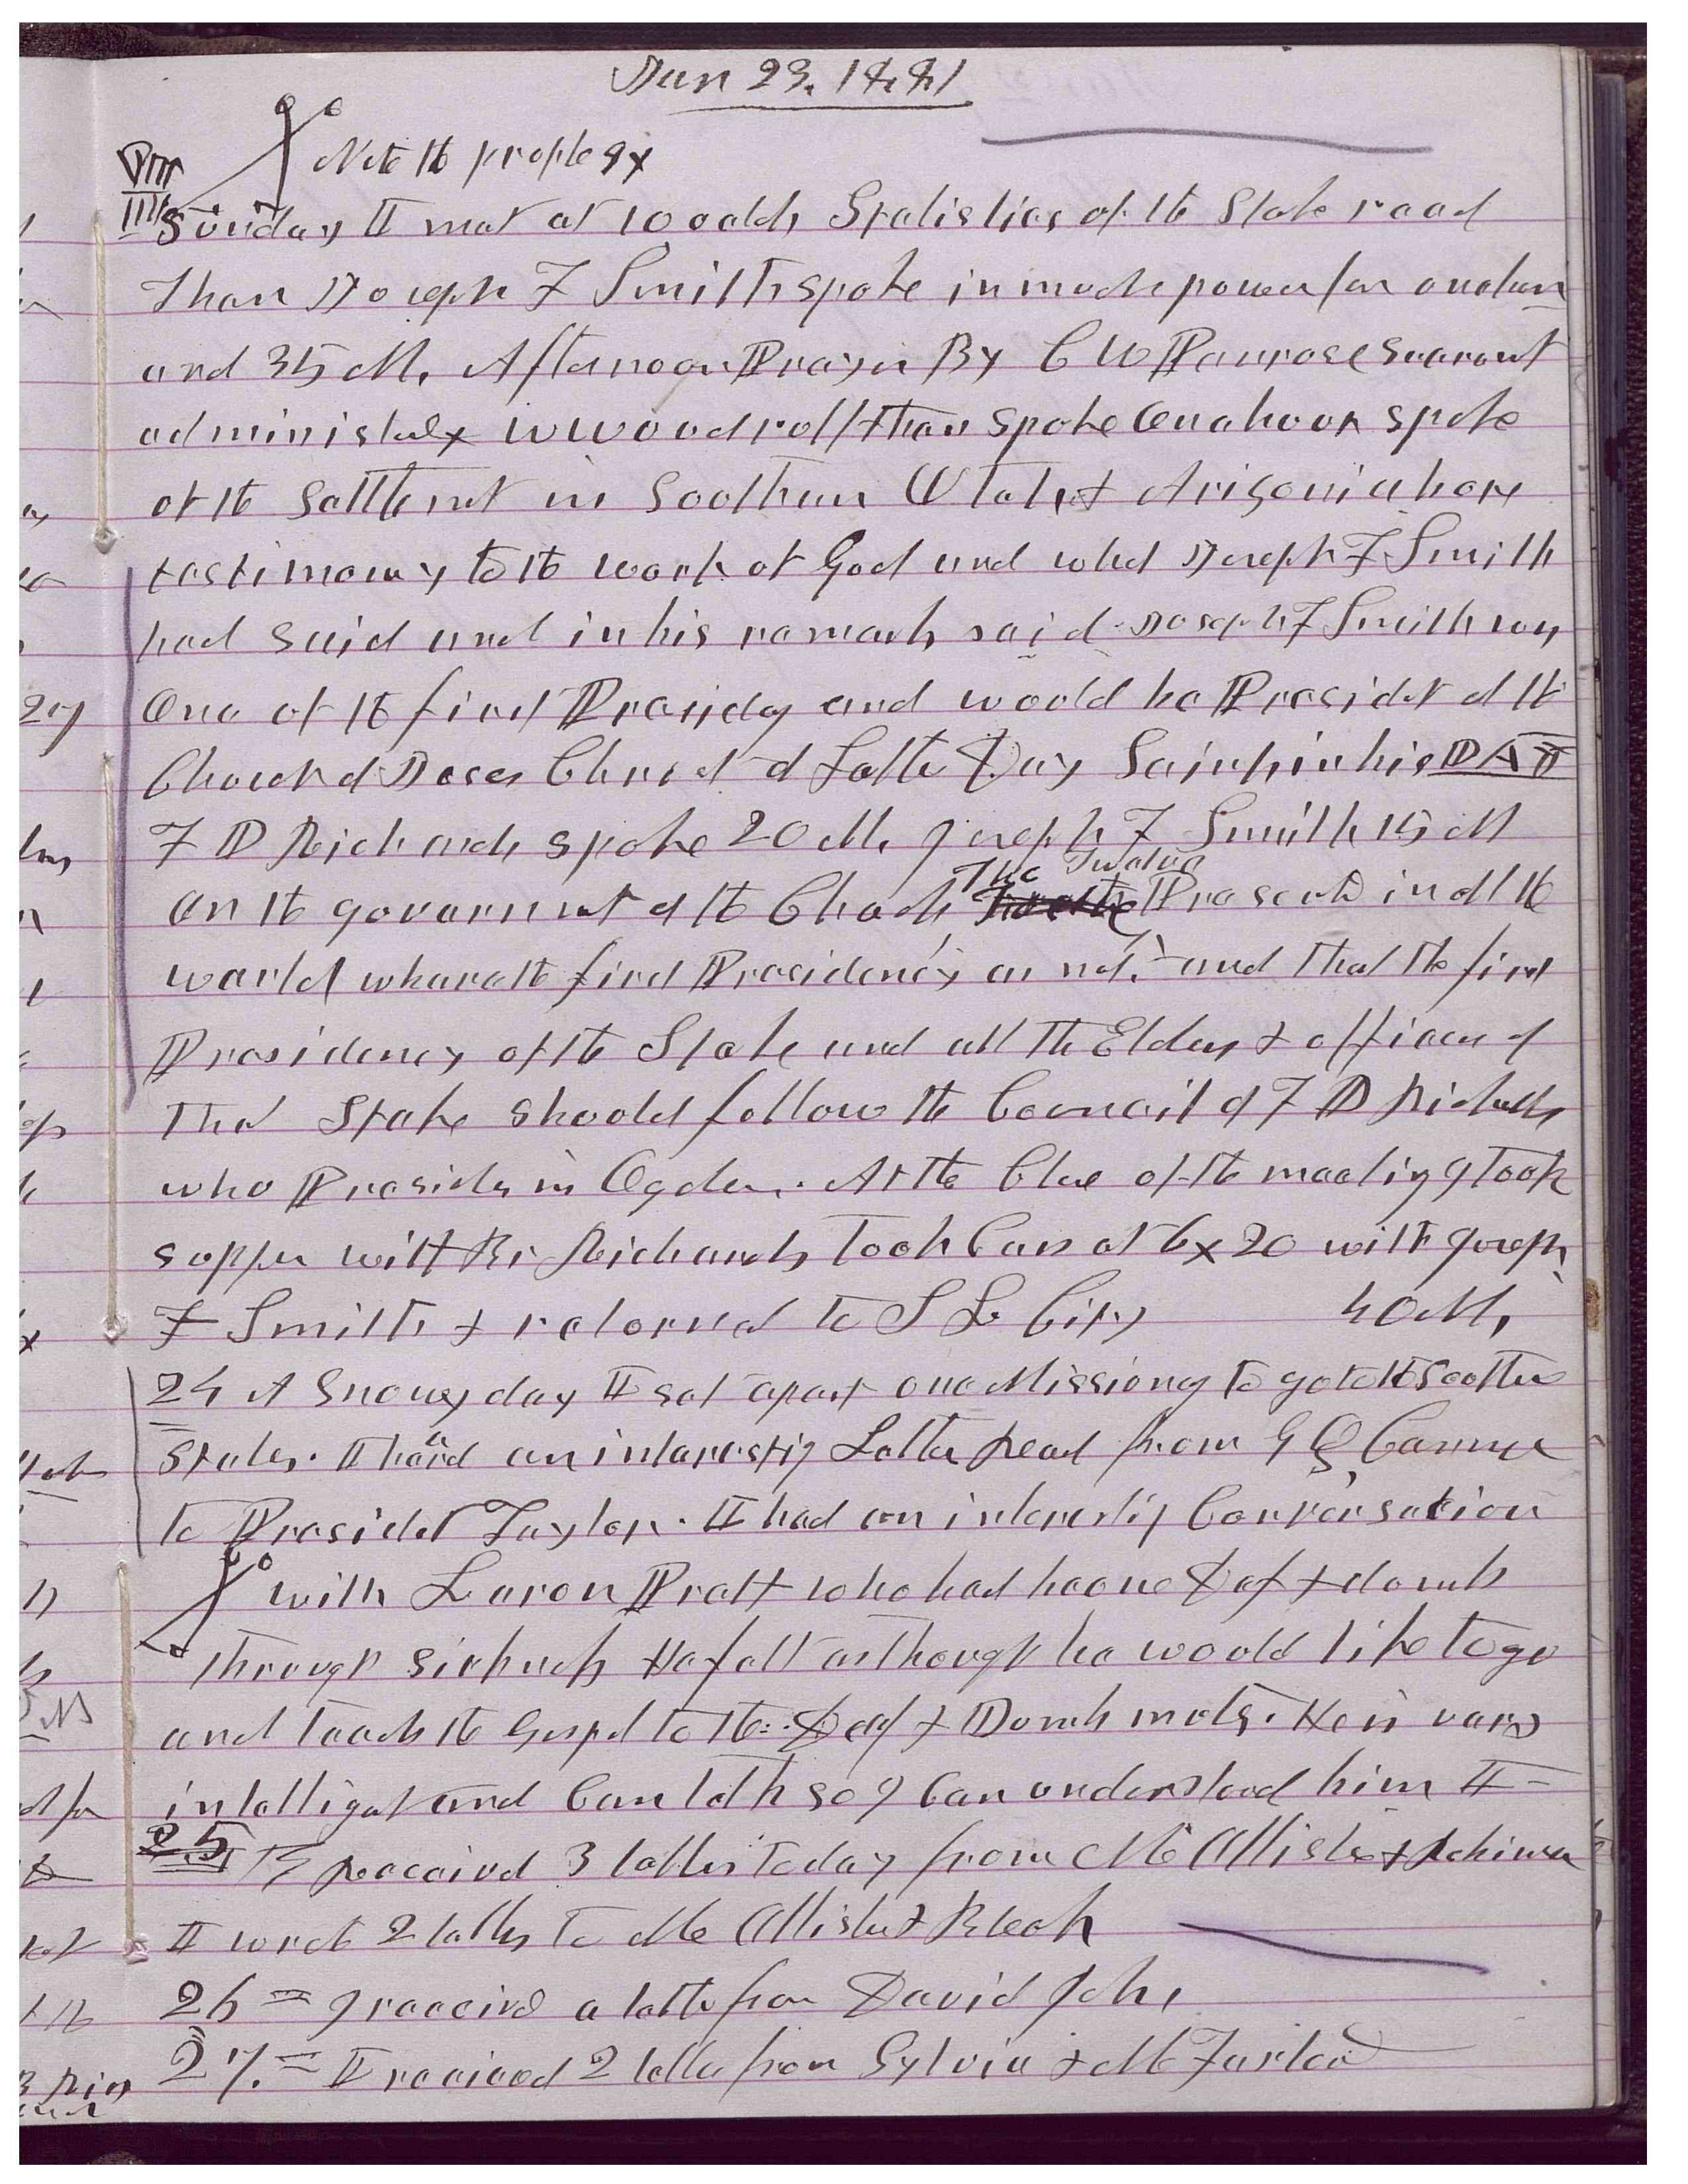 Jan 23, 1881
Note the prophesy
Sunday I met at 10 oclok Statistics of the Stake read
Then Joseph F Smith spoke in much power for one hour
and 35 M, Afternoon Prayer By C W Penrose Sacrament
administed W Woodruff then spoke One hour spoke
of the settlemt in Southern Utah & Arizonia bore
testimony to the work of God and what Joseph F Smith
had said and in his remarks said Joseph F Smith was
One of the first Presidcy and would be President of the
Church of Jesus Christ of Latter Day Saints in his DAY
F D Richards spoke 20 M, Joseph F Smith 15 M
on the governmt of the Church The Twelve Preside in all the
world whare the first Presidency are not, and that the first
Presidency of the Stake and all the Elders & officers of
that Stake should follow the Council of F D Richards
who Presides in Ogden. At the Close of the meeting I took
supper with Br Richards took Cars at 6x20 with Joseph
F Smith & returned to S L City 40 M,
24 A Snowy day I set apart one Missionary to go to the Southern
States. I heard an interestig Letter read from G Q Cannon
to Presidet Taylor. I had an interestig Conversation
with Laron Pratt who had become Def & domb
through sickness He felt as though he would like to go
and teach the Gospel to the Deaf & Domb mutes. He is vary
intelligent and Can talk so I Can understand him
25 I received 3 letters today from McAllister &
I wrote 2 letters to McAllister & Bleak
26 I received a letter from David John,
27. I received 2 letters from Sylvia & McFarland